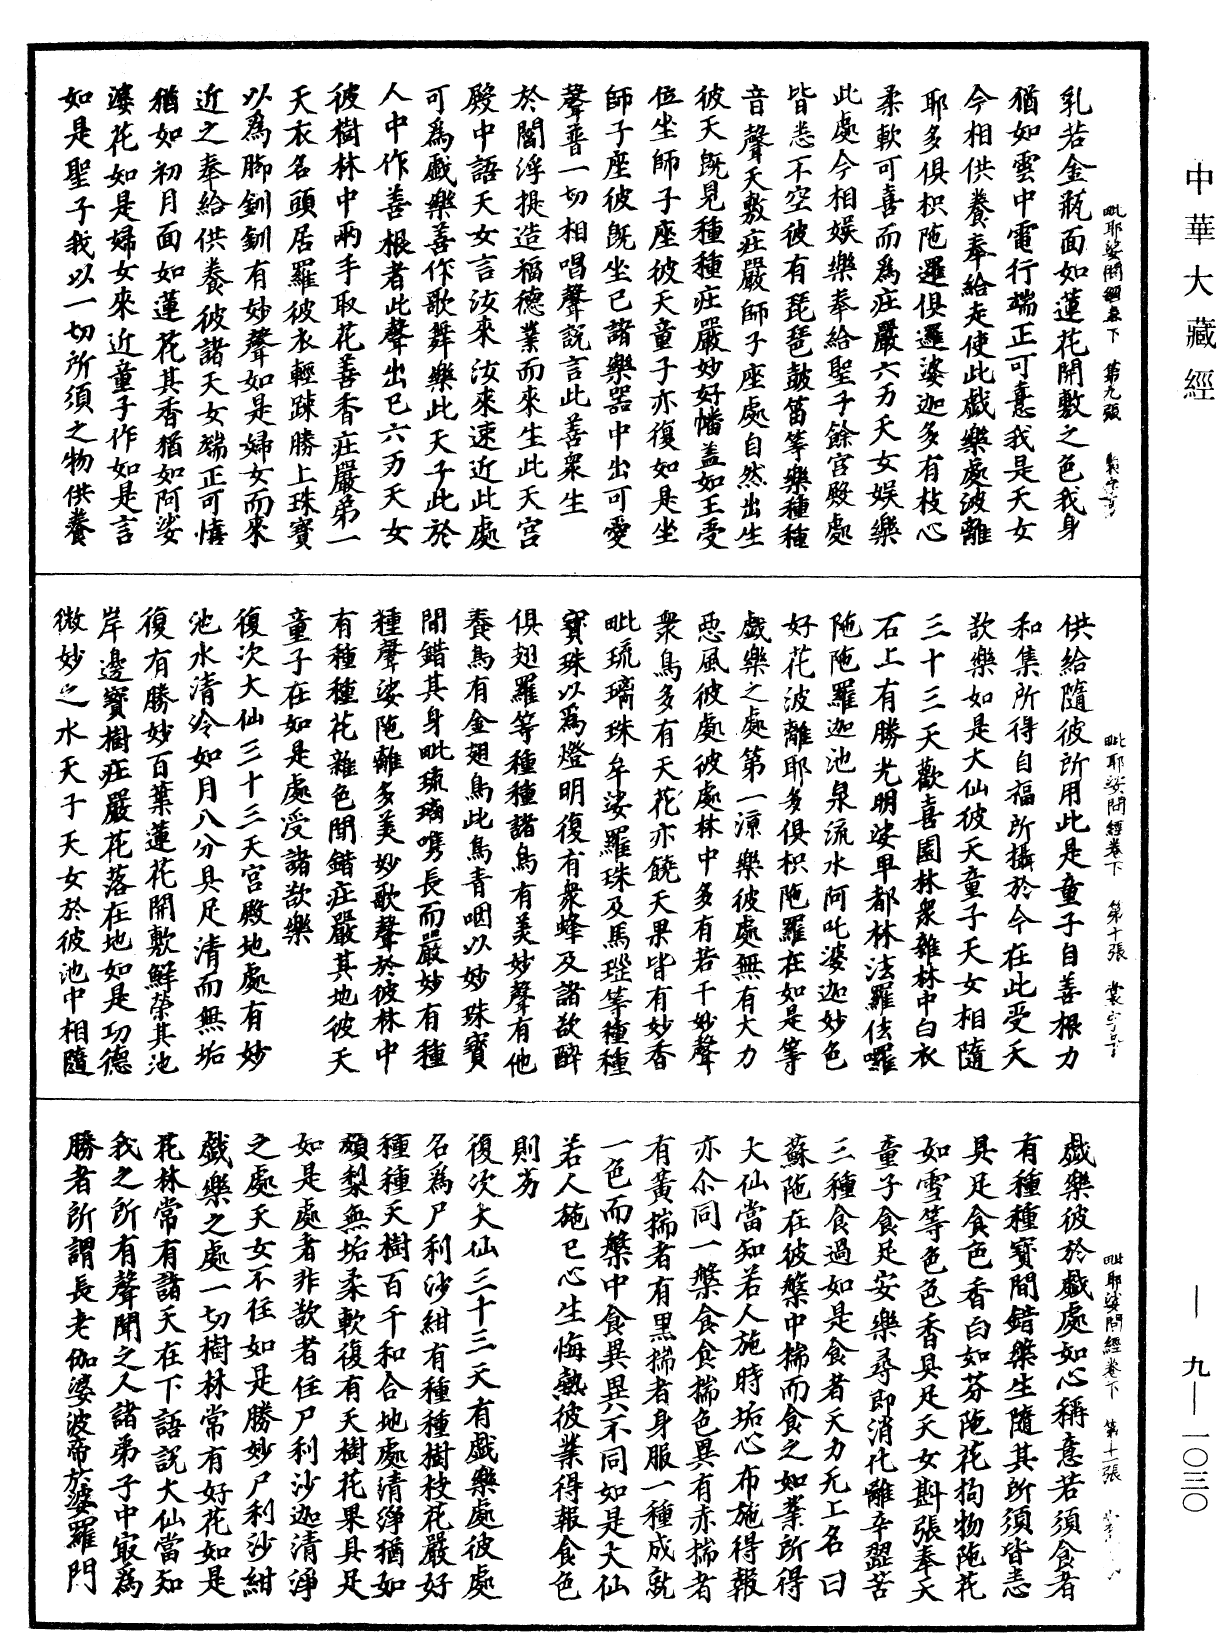 中華大藏經
毗耶娑問經卷下　第九張
乳若金瓶面如蓮花開敷之色我身
猶如雲中電行端正可憙我是天女
今相供養奉給走使此戲樂處波離
耶多俱枳陁邏俱邏婆迦多有枝心
柔軟可喜而爲庄嚴六万天女娛樂
此處今相娛樂奉給聖子餘宮殿處
皆悉不空彼有琵琶鼓笛筝樂種種
音聲天敷莊嚴師子座處自然出生
彼天旣見種種莊嚴妙好幡盖如王受
位坐師子座彼天童子亦復如是坐
師子座彼旣坐已諸樂器中出可愛
聲普一切相唱聲說言此善衆生
於閻浮提造福德業而來生此天宮
殿中語天女言汝來汝來速近此處
可爲戲樂善作歌舞樂此天子此於
人中作善根者此聲出已六万天女
彼樹林中兩手取花善香莊嚴弟一
天衣名頭居羅彼衣輕踈勝上珠寶
以爲脚釧釧有妙聲如是婦女而來
近之奉給供養彼諸天女端正可憘
猶如初月面如蓮花其香猶如阿娑
婆花如是婦女來近童子作如是言
如是聖子我以一切所須之物供養
毗耶娑問經卷下　第十張　裳字号
供給隨彼所用此是童子自善根力
和集所得自福所攝於今在此受天
歡樂如是大仙彼天童子天女相隨
三十三天歡喜園林衆雜林中白衣
石上有勝光明娑甲都林法羅佉囉
陁陁羅迦池泉流水阿吒婆迦妙色
好花波離耶多俱枳陁羅在如是等
戲樂之處第一源樂彼處無有大力
惡風彼處彼處林中多有若干妙聲
衆鳥多有天花亦饒天果皆有妙香
毗琉璃珠牟娑羅珠及馬瑙等種種
寶珠以爲燈明復有衆蜂及諸欲醉
俱翅羅等種種諸鳥有美妙聲有他
養鳥有金翅鳥此鳥青咽以妙珠寶
閒錯其身毗琉璃嘴長而嚴妙有種
種聲娑陁離多美妙歌聲於彼林中
有種種花雜色閒錯莊嚴其地彼天
童子在如是處受諸欲樂
復次大仙三十三天宮殿地處有妙
池水清冷如月八分具足清而無垢
復有勝妙百葉蓮花開敷鮮榮其池
岸邊寶樹莊嚴花落在地如是功德
微妙之水天子天女於彼池中相隨
毗耶娑問經卷下　第十一張
戲樂彼於戲處如心稱意若須食者
有種種寶閒錯槃生隨其所須皆悉
具足食色香白如芬陁花拘物陁花
如雪等色色香具足天女斟張奉天
童子食足安樂尋即消化離辛澀苦
三種食過如是食者天力无上名曰
蘇陁在彼槃中揣而食之如業所得
大仙當知若人施時垢心布施得報
亦尒同一槃食食揣色異有赤揣者
有黃揣者有黑揣者身服一種成就
一色而槃中食異異不同如是大仙
若人施已心生悔熱彼業得報食色
則劣
復次大仙三十三天有戲樂處彼處
名爲尸利沙紺有種種樹枝花嚴好
種種天樹百千和合地處清淨猶如
頗梨無垢柔軟復有天樹花果具足
如是處者非欲者住尸利沙迦清淨
之處天女不住如是勝妙尸利沙紺
戲樂之處一切樹林常有好花如是
花林常有諸天在下語說大仙當知
我之所有聲聞之人諸弟子中冣爲
勝者所謂長老伽婆波帝於婆羅門
九—一〇三〇